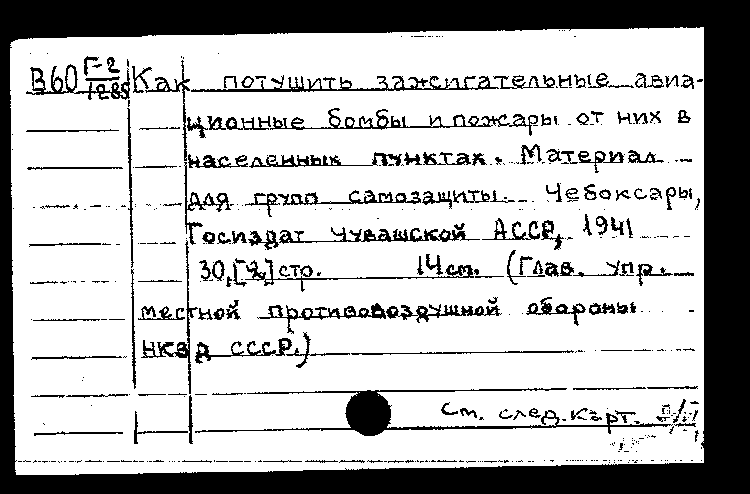 В60 Г-2/1285 Как потушить зажигательные авиа-
ционные бомбы и пожары от них в
населенных пунктах. Материал
для групп самозащиты. Чебоксары,
Госиздат Чувашской АССР, 1941
30,[2]стр. 14см. (Глав. упр.
местной противовоздушной обороны
НКВД СССР.)
См. след. карт.